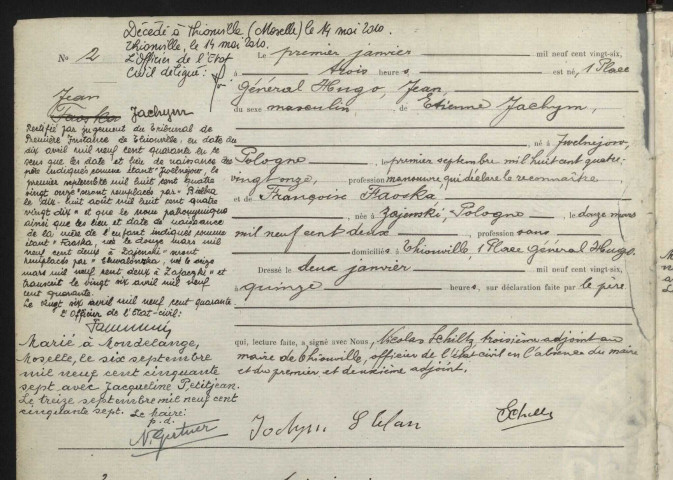 Décédé à Thionville (Moselle) le 14 mai 2010.
Thionville, le 14 mai 2010.
L'Officier de l'Etat
Civil délégué:
No 2
Jean
Faoska Jachym
Rectifié par jugement du Tribunal de
Première Instance de Thionville, en date du
dix avril mil neuf cent quarante en ce
sens que les date et lieu de naissance du
père indiqués comme étant "Jwelnejow, le
premier septembre mil huit cent quatre
vingt onze" seront remplacés par "Bielka
le dix-huit août mil huit cent quatre
vingt dix" et que le nom patronymique
ainsi que les lieu et date de naissance
de la mère de l'enfant indiqués comme
étant "Faoska, née le douze mars mil
neuf cent deux à Zajenski" seront
remplacés par "Chwalónska, née le seize
mars mil neuf cent deux à Zajaczki" et
transcrit le vingt six avril mil neuf
cent quarante.
Le vingt six avril mil neuf cent quarante
l'Officier de l'Etat-civil:
Marié à Mondelange,
Moselle, le six septembre
mil neuf cent cinquante
sept avec Jacqueline Petitjean.
Le treize septembre mil neuf cent
cinquante sept. Le maire:
p.d.
Le premier janvier mil neuf cent vingt-six,
à trois heures, est né, 1 Place
Général Hugo, Jean,
du sexe masculin, de Etienne Jachym,
né à Jwelnejow,
Pologne, le premier septembre mil huit cent quatre-
vingt onze, profession manoeuvre, qui déclare le reconnaître,
et de Françoise Faoska
née à Zajenski, Pologne, le douze mars
mil neuf cent deux, profession sans
domiciliés à Thionville, 1 Place Général Hugo.
Dressé le deux janvier mil neuf cent vingt-six,
à quinze heures, sur déclaration faite par le père
qui, lecture faite, a signé avec Nous, Nicolas Schiltz, troisième adjoint au
maire de Thionville, officier de l'état civil en l'absence du maire
et du premier et deuxième adjoint.